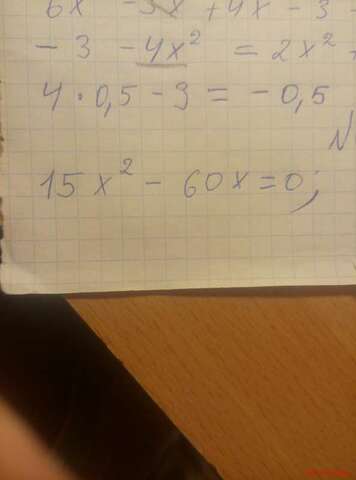 6x - 3x + 4x - 3
- 3 - 4x² = 2x²
4 · 0,5 - 3 = - 0,5
15x² - 60x = 0;